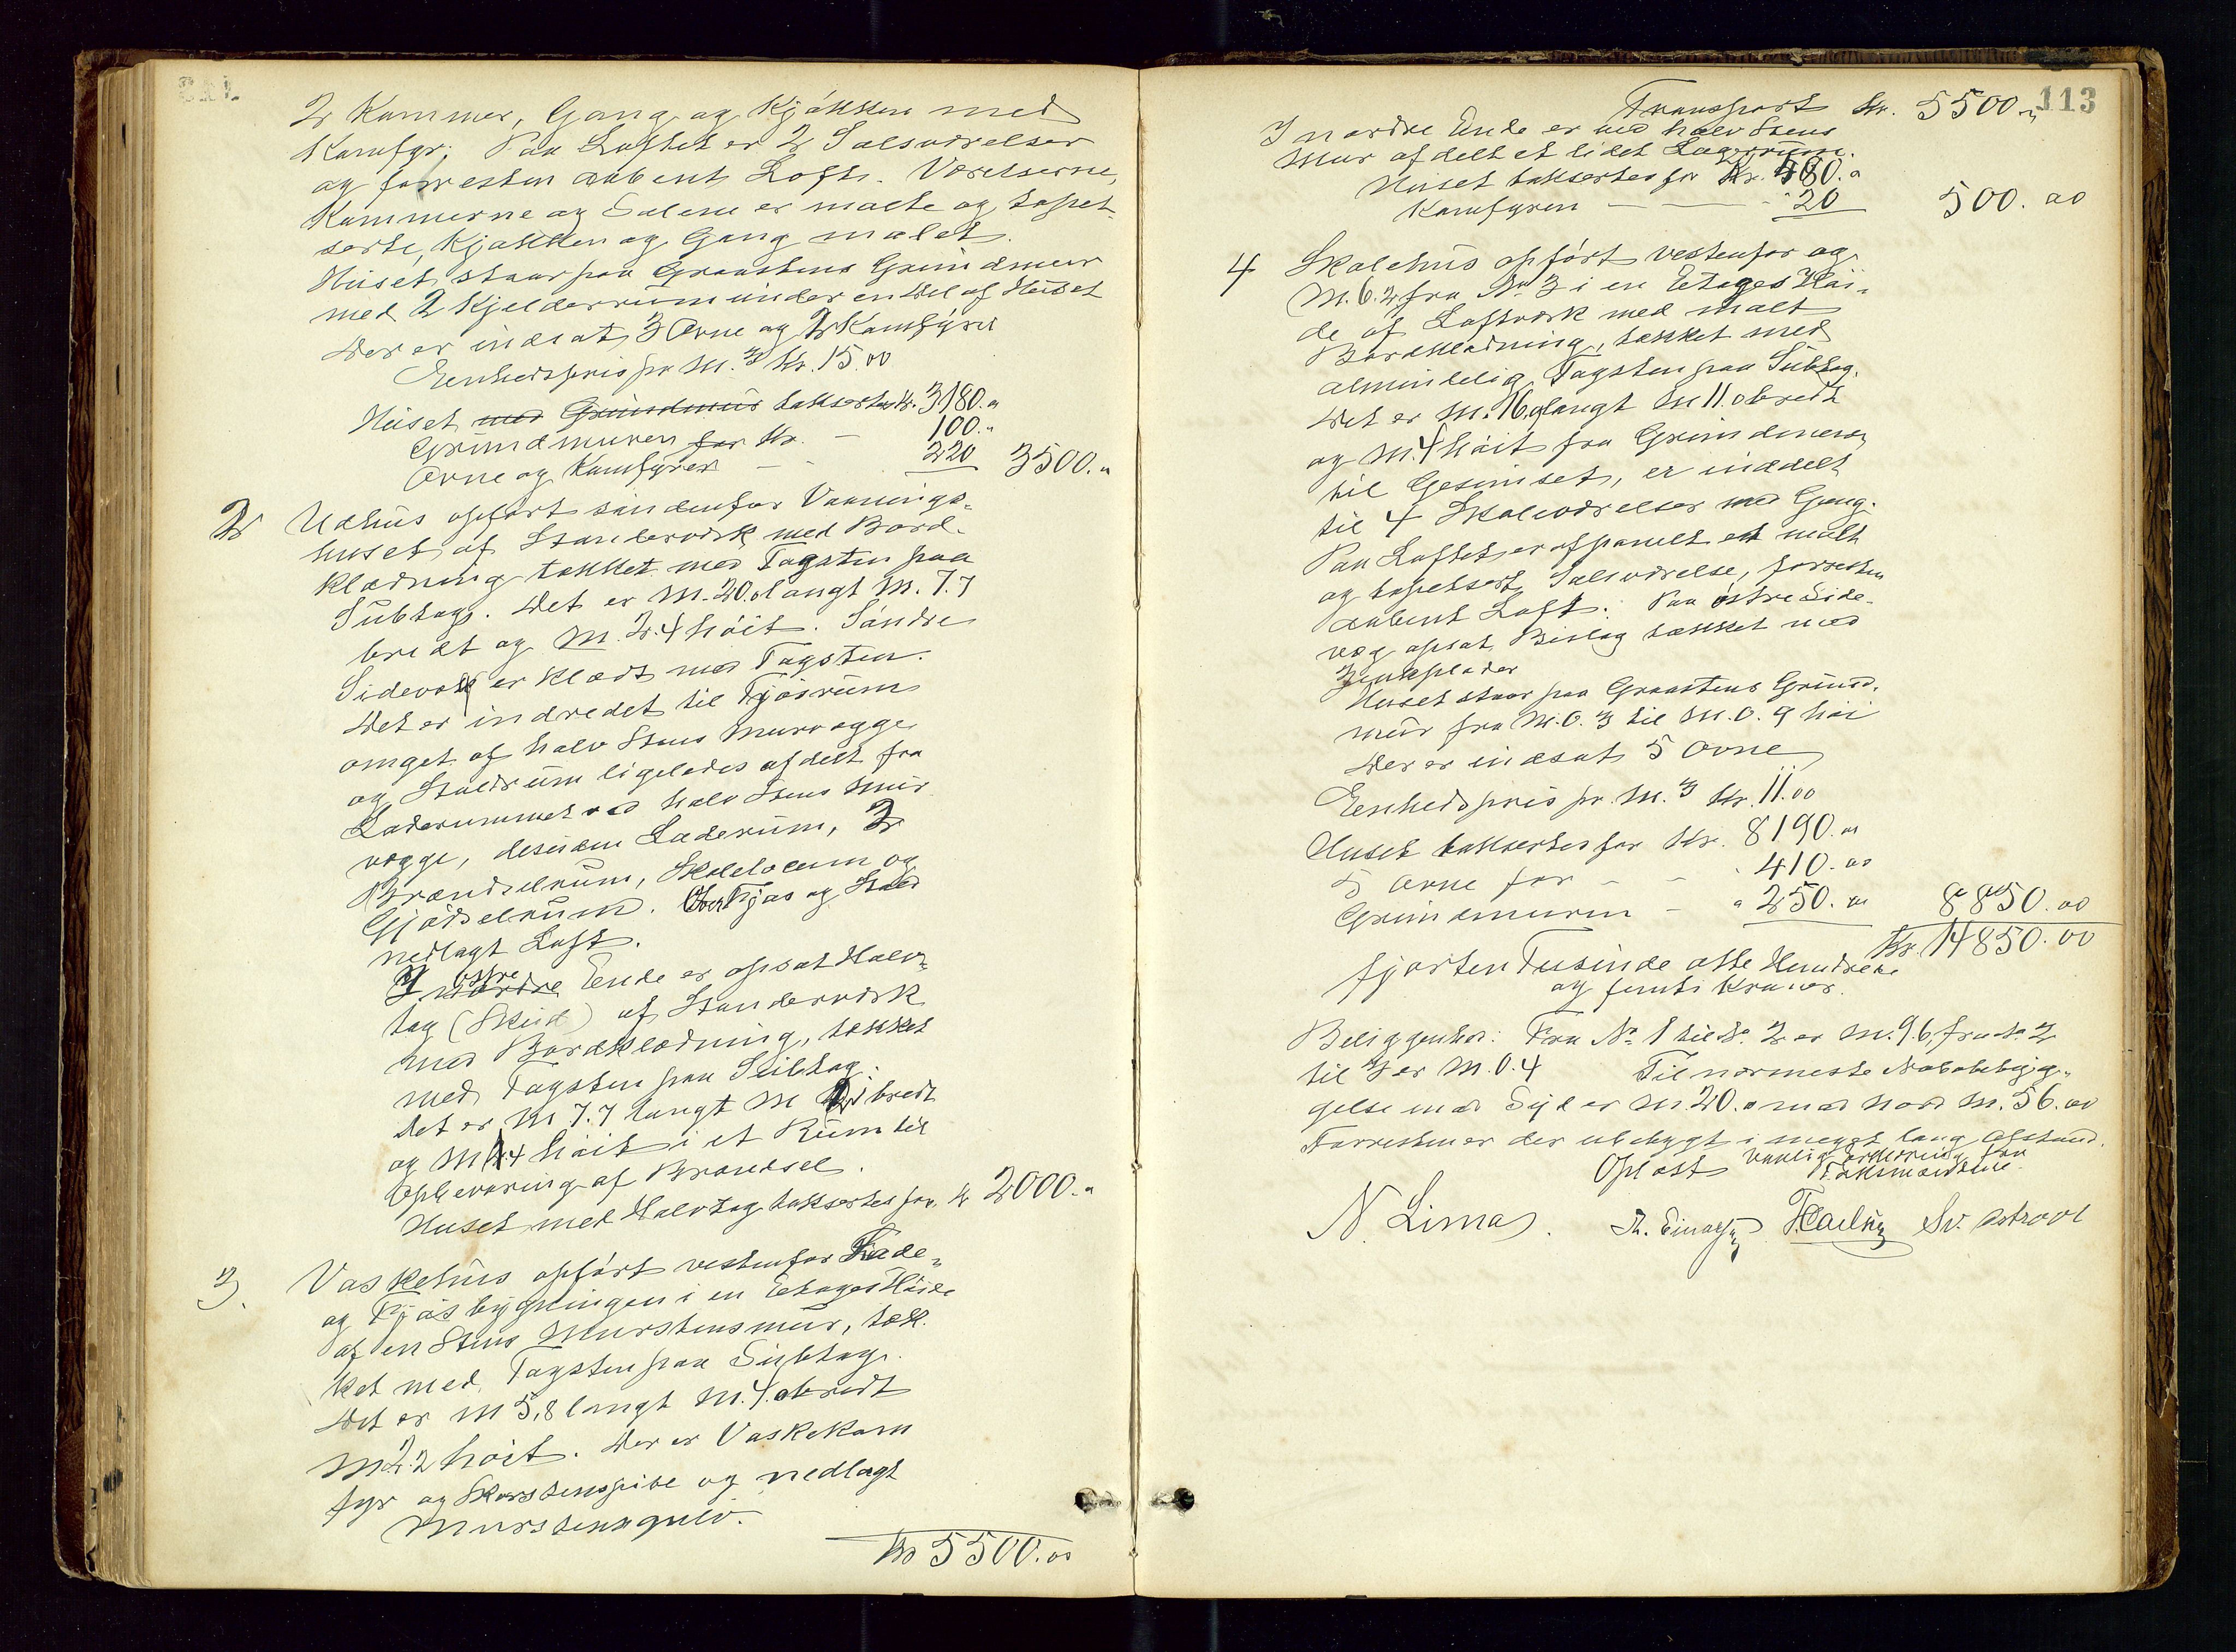 2 Kammer, Gang og Kjøkken med
Komfyr. Paa Loftet er 2 Salsværelser
og forresten aabent Loft. Værelserne,
Kammerne og Salene er malte og tapet-
serte, Kjøkken og Gang malet.
Huset staar paa Graastens Grundmur
med 2 Kjelderrum under en Del af Huset
Der er indsat 3 Ovne og 2 Komfyrer
Eenhedspris pr M.3 Kr. 15.00
Huset med Grundmur takseres Kr. 3180.00
Grundmuren for Kr. - 100.00
Ovne og Komfyrer - - 220 3500.00
2 Udhus opført søndenfor Vaanings-
huset af Standerværk med Bord-
klædning tækket med Tagsten paa
Subtag. Det er M. 20.0 langt M. 7.7
bredt og M. 2.4 høit. Søndre
Sidevæg er klædt med Tagsten.
Det er indredet til Fjøsrum
omget af halv Stens Murvægge
og Staldrum ligeledes afdelt fra
Laderummet ved halv Stens Mur
vægge, desuden Laderum, 2
Brændselrum, Skolelocum og
Gjødselrum. Over Fjøs og Stald
nedlagt Loft.
I nordre østre Ende er opsat Halv-
tag (Skud) af Standerværk
med Bordklædning, tækket
med Tagsten paa Subtag.
Det er M 7.7 langt M bredt
og M 2.4 høit i et Rum til
Opbevaring af Brændsel.
Huset med Halvtag takseres for Kr 2000.00
3. Vaskehus opført vestenfor Lade-
og Fjøsbygningen i en Etages Høide
af en Stens Murstensmur, tæk-
ket med Tagsten paa Subtag.
Det er M 5.8 langt M. 4.0 bredt
M 2.2 høit. Der er Vaskekom
fyr og Skorstenspibe og nedlagt
Murstensgulv.
Kr 5500.00
113
Transport Kr. 5500.00
I nordre Ende er ved halv Stens
Mur afdelt et lidet Lagerrum.
Huset takseres for Kr. 480.00
Komfyren - - 20 500.00
4 Skolehus opført vestenfor og
M. 6.2 fra No 3 i en Etages Høi-
de af Laftværk med malt
Bordklædning, tækket med
almindelig Tagsten paa Subtag.
Det er M. 16.9 langt M 11.0 bredt
og M. 4 høit fra Grundmuren
til Gesimset, er inddelt
til 4 Skoleværelser med Gang.
Paa Loftet er afpanelt et malt
og tapetsert Salsværelse, forresten
aabent Loft. Paa østre Side-
væg opsat Bislag tækket med
Zinkplader
Huset staar paa Graastens Grund-
mur fra M. 0.3 til M. 0.9 høi
Der er indsat 5 Ovne
Eenhedspris pr. M.3 Kr. 11.00
Huset takseres for Kr. 8190.00
5 Ovne for - - 410.00
Grundmuren - " 250.00 8850.00
Kr. 14850.00
fjorten Tusinde otte Hundrede
og femti Kroner.
Beliggenhed: Fra No 1 til No 2 er M. 9.6, fra No 2
til 3 er M. 0.4 Til nærmeste Nabobebyg-
gelse mod Syd er M. 20.0 mod Nord M. 56.00
Forresten er der ubebygt i meget lang Afstand.
Oplæst Vanlig Erklæring fra
Taksmændene.
N. Lima. Th. Einarsen Sv. Østraat